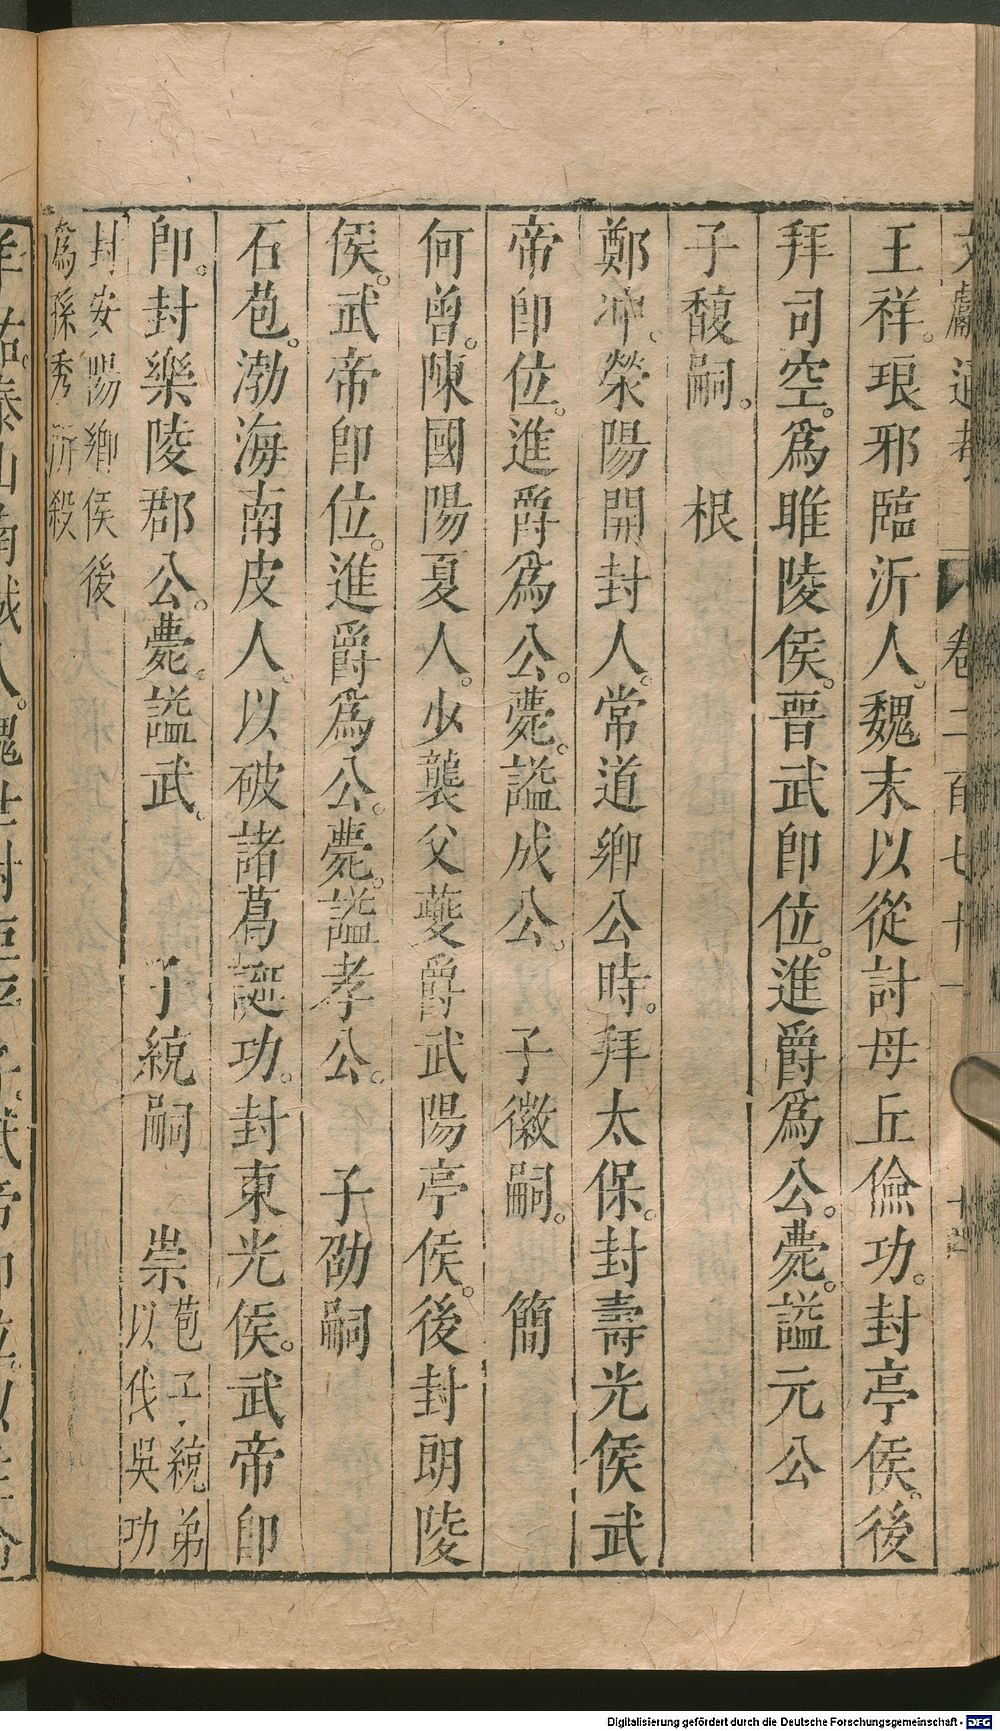 王祥。琅邪臨沂人。魏末以從討母丘儉功。封亭侯。後
拜司空。爲睢陵侯。晉武即位。進爵爲公。薨。謚元公
子馥嗣。 根
鄭冲。滎陽開封人。常道鄉公時。拜太保。封壽光侯武
帝即位。進爵爲公。薨。謚成公。 子徽嗣。 簡
何曾。陳國陽夏人。少襲父夔爵武陽亭侯。後封朗陵
侯。武帝即位。進爵爲公。薨。謚孝公。 子劭嗣
石苞。渤海南皮人。以破諸葛誕功。封東光侯。武帝即
即。封樂陵郡公。薨。謚武。 子統嗣 崇 苞子統弟
以伐吳功
封安陽鄉侯後
爲孫秀所殺
Digitalisierung gefördert durch die Deutsche Forschungsgemeinschaft - DFG